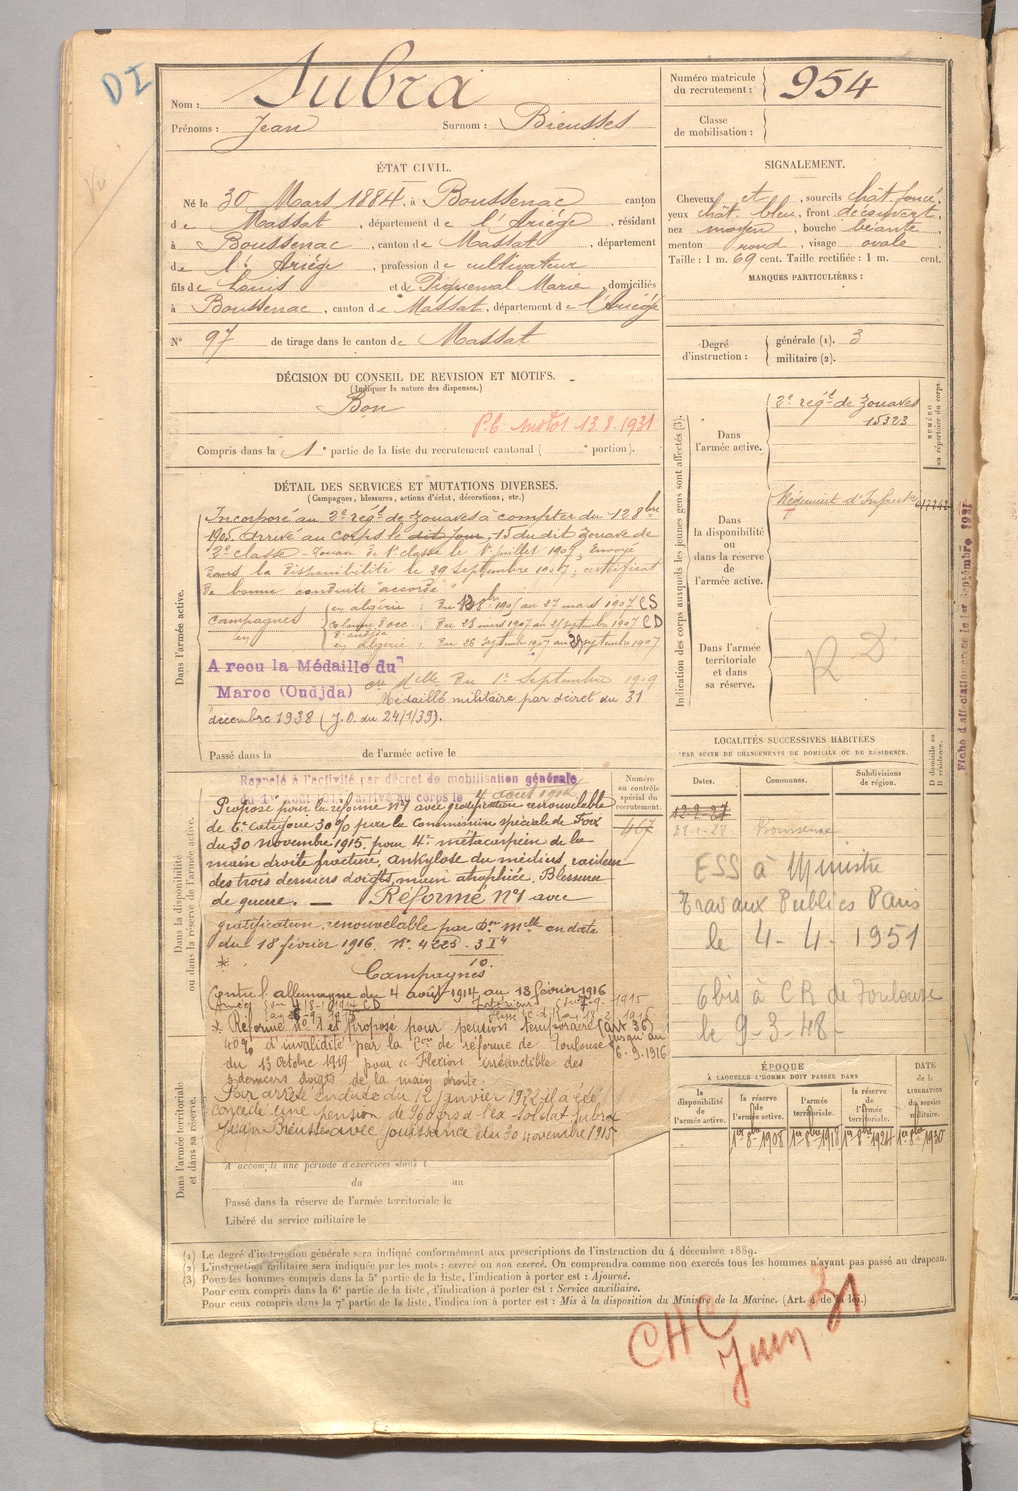 DI
Vu
Nom : Subra
Prénoms : Jean Surnom : Bieusses
Numéro matricule du recrutement : 954
Classe de mobilisation :
ÉTAT CIVIL.
Né le 30 Mars 1884, à Boussenac canton
de Massat, département de l'Ariège, résidant
à Boussenac, canton de Massat, département
de l'Ariège, profession de cultivateur
fils de Louis et de Piquemal Marie, domiciliés
à Boussenac, canton de Massat, département de l'Ariège
N° 97 de tirage dans le canton de Massat
SIGNALEMENT.
Cheveux et, sourcils chât. foncé,
yeux chât. bleu, front découvert,
nez moyen, bouche béante,
menton rond, visage ovale
Taille : 1 m. 69 cent. Taille rectifiée : 1 m. cent.
MARQUES PARTICULIÈRES :
Degré d'instruction : générale (1). 3
militaire (2).
DÉCISION DU CONSEIL DE REVISION ET MOTIFS.
(Indiquer la nature des dispenses.)
Bon
P.C. 13.8.1931
Compris dans la 1e partie de la liste du recrutement cantonal ( e portion).
Indication des corps auxquels les jeunes gens sont affectés (3).
NUMÉRO au répertoire du corps.
Dans l'armée active.
2e régt de zouaves
15323
Dans la disponibilité ou dans la réserve de l'armée active.
Régiment d'Infanterie
Dans l'armée territoriale et dans sa réserve.
R D
Fiche d'affectation le 1er Septembre 1921
DÉTAIL DES SERVICES ET MUTATIONS DIVERSES.
(Campagnes, blessures, actions d'éclat, décorations, etc.)
Dans l'armée active.
Incorporé au 2e régt de zouaves à compter du 1 28bre
1905. Arrivé au corps le dit jour, 15 du dit zouave de
2e classe - Zouave de 1e classe le 1er juillet 1907, Envoyé
dans la disponibilité le 29 septembre 1907; certificat
de bonne conduite "accordé"
Campagnes
en algérie : du 8bre 1905 au 27 mars 1907 CS
du 28 mars 1907 au 25 septembre 1907 CD
en algérie : du 26 septembre 1907 au 28 septembre 1907
A reçu la Médaille du
Maroc (Oudjda) du 1er Septembre 1909
Médaillé militaire par décret du 31
décembre 1938 (J.O. du 24/1/39).
Passé dans la de l'armée active le
Dans la disponibilité ou dans la réserve de l'armée active.
Rappelé à l'activité par décret de mobilisation générale
du 1er août 1914 arrivé au corps le 4 août 1914
Proposé pour la réforme n°1 avec gratification renouvelable
de 6e catégorie 30% par la Commission spéciale de Foix
du 30 novembre 1915, pour 4e métacarpien de la
main droite fracturé, ankylose du médius, raideur
des trois derniers doigts, main atrophiée. Blessure
de guerre. — Réformé n°1 avec
gratification renouvelable par Don Melle en date
du 18 février 1916.
Campagnes
Contre l'allemagne du 4 août 1914 au 18 février 1916
* Réformé n°1 et Proposé pour pension temporaire (art 36)
40% d'invalidité par la Con de réforme de Toulouse jusqu'au
du 13 octobre 1919 pour "Flexion irréductible des 6.9.1916
3 derniers doigts de la main droite.
Par arrêté en date du 12 janvier 1922 il a été
concédé une pension de
Jean Bieusses avec jouissance du 30 novembre 1915
Numéro au contrôle spécial du recrutement.
467
Dans l'armée territoriale et dans sa réserve.
A accompli une période d'exercices dans l
du au
Passé dans la réserve de l'armée territoriale le
Libéré du service militaire le
LOCALITÉS SUCCESSIVES HABITÉES
PAR SUITE DE CHANGEMENTS DE DOMICILE OU DE RÉSIDENCE.
D domicile ou R résidence.
Dates. Communes. Subdivisions de région.
12-2-27
28-1-28 Boussenac
ESS à Ministre
Travaux Publics Paris
le 4-4-1951
6bis à CR de Toulouse
le 9-3-48-
ÉPOQUE
À LAQUELLE L'HOMME DOIT PASSER DANS
la disponibilité de l'armée active.
la réserve de l'armée active.
l'armée territoriale.
la réserve de l'armée territoriale.
DATE de la LIBÉRATION du service militaire.
1er 8bre 1908 1er 8bre 1918 1er 8bre 1924 1er 8bre 1930
(1) Le degré d'instruction générale sera indiqué conformément aux prescriptions de l'instruction du 4 décembre 1889.
(2) L'instruction militaire sera indiquée par les mots : exercé ou non exercé. On comprendra comme non exercés tous les hommes n'ayant pas passé au drapeau.
(3) Pour les hommes compris dans la 5e partie de la liste, l'indication à porter est : Ajourné.
Pour ceux compris dans la 6e partie de la liste, l'indication à porter est : Service auxiliaire.
Pour ceux compris dans la 7e partie de la liste, l'indication à porter est : Mis à la disposition du Ministre de la Marine. (Art. 4 de la loi.)
CHC
Juin 31